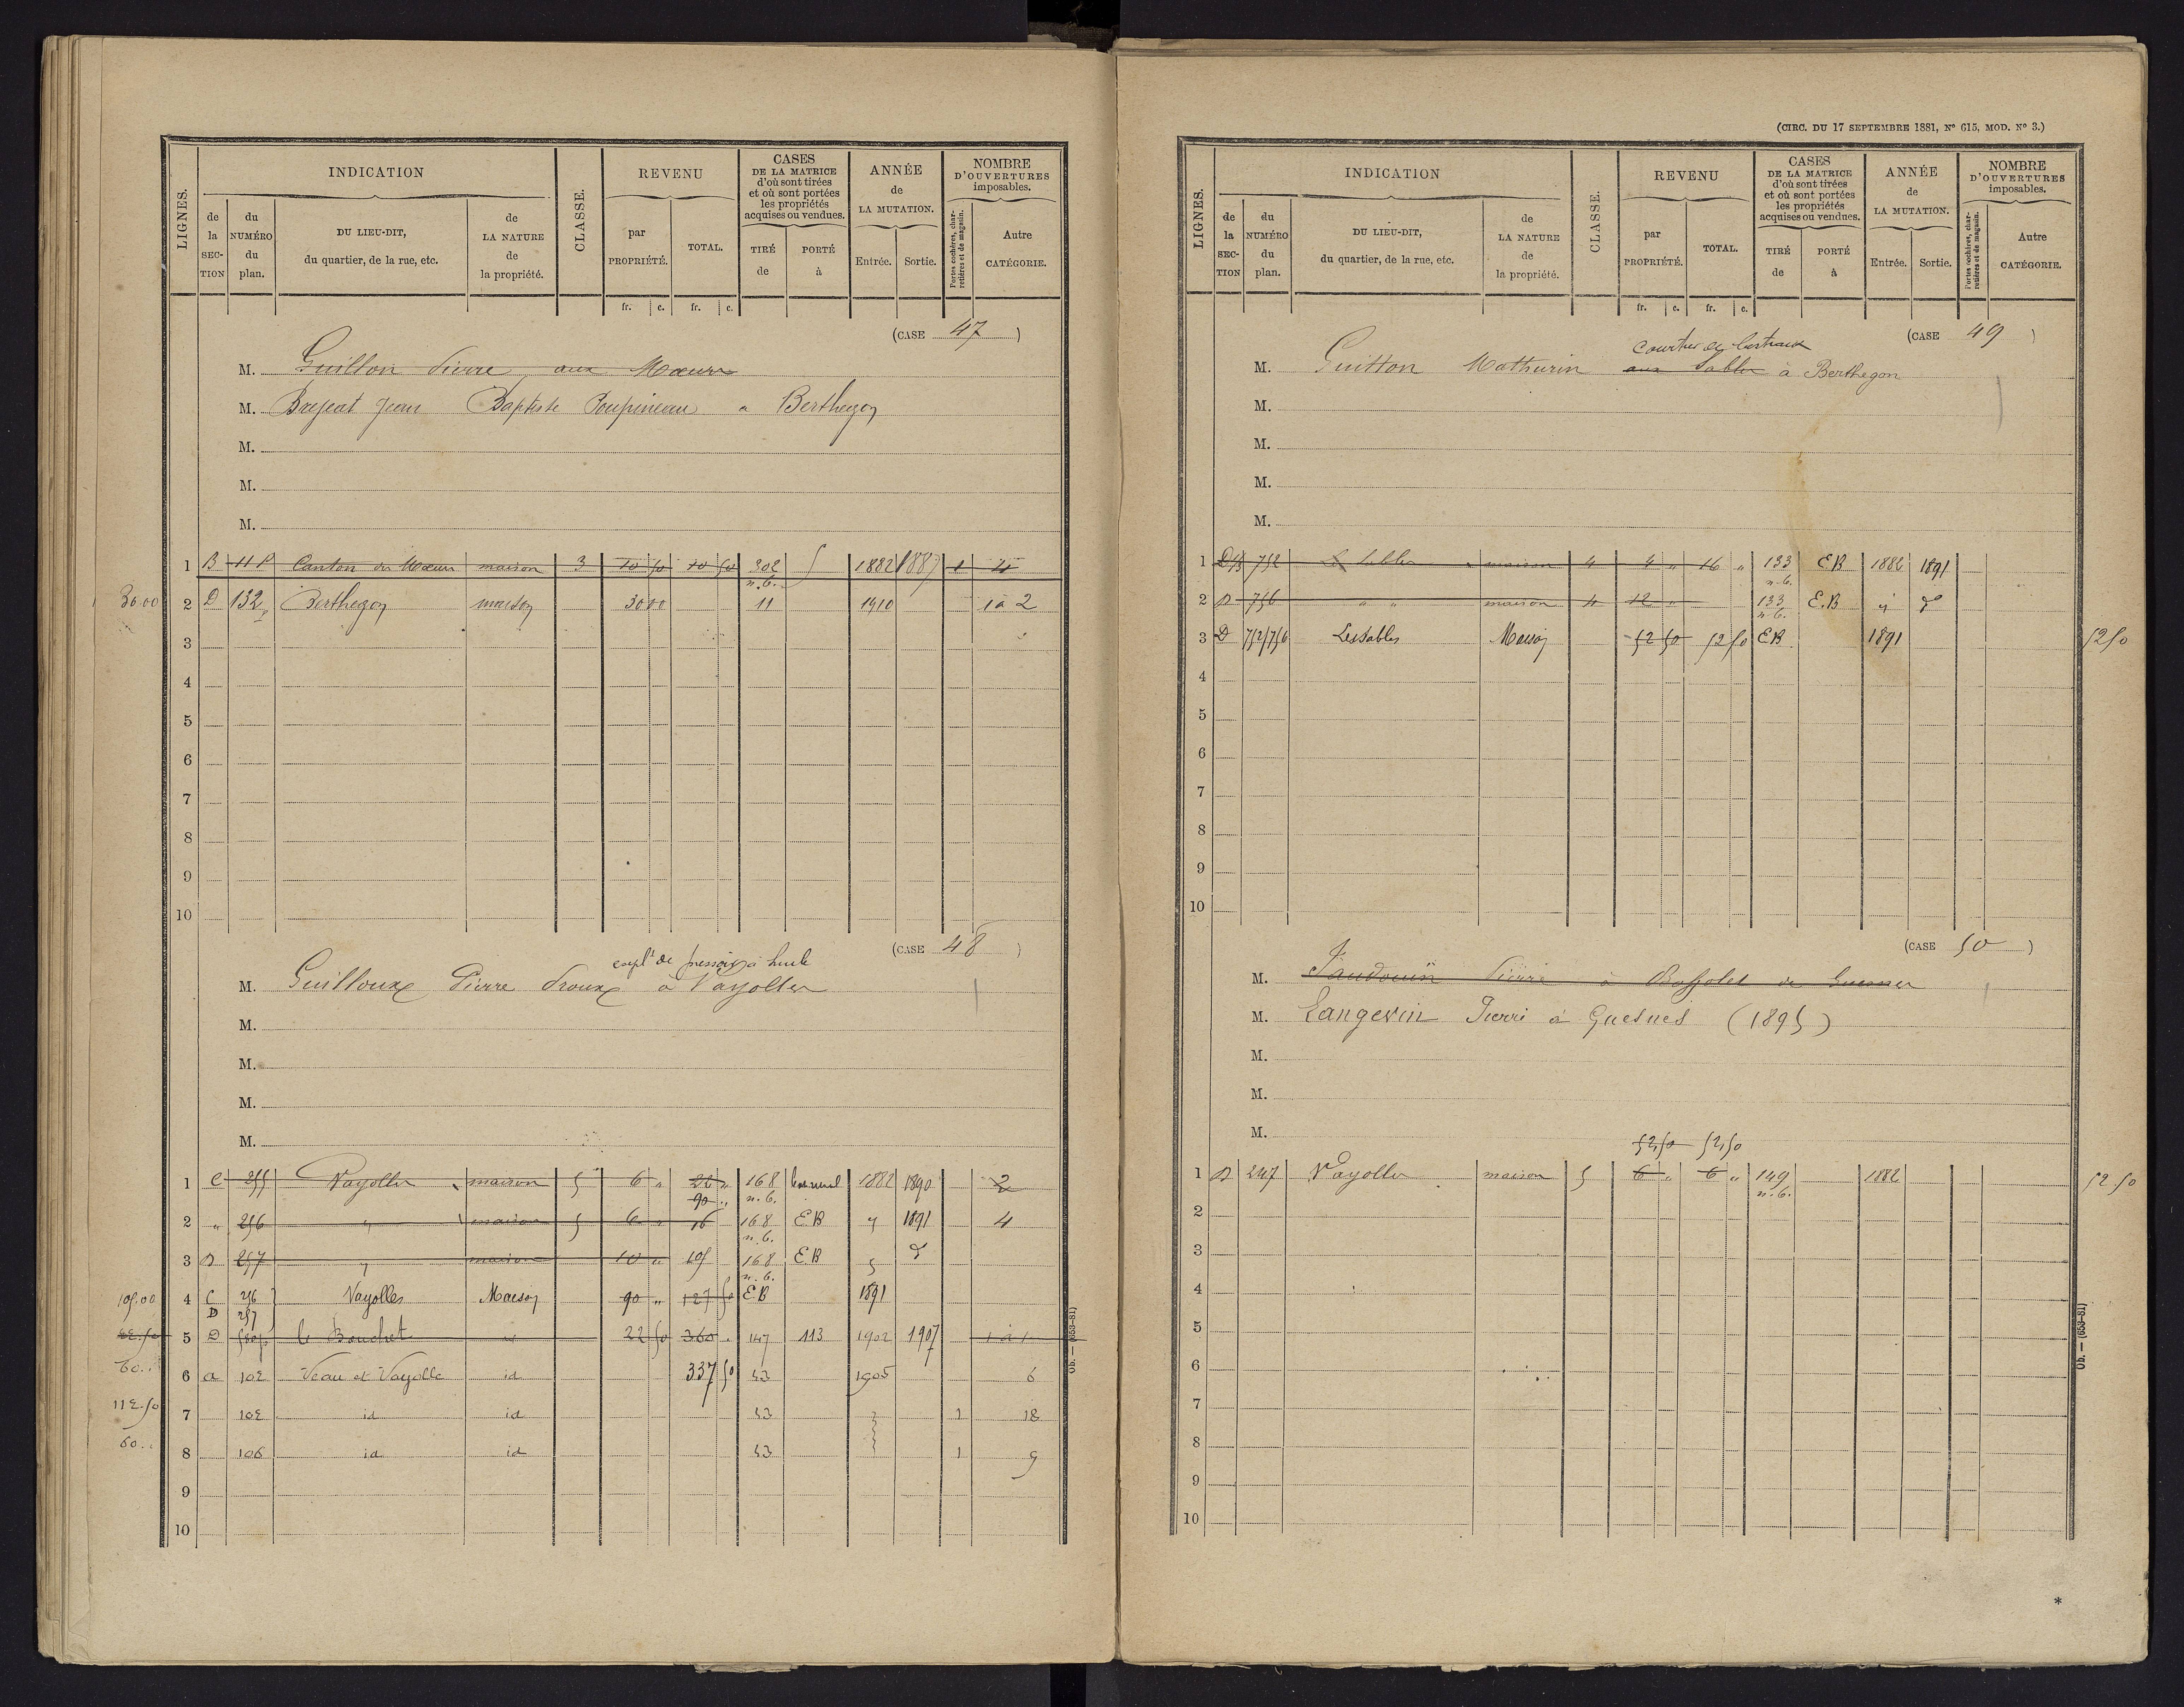 LIGNES.
INDICATION
de la SECTION
du NUMÉRO du plan.
DU LIEU-DIT, du quartier, de la rue, etc.
de LA NATURE de la propriété.
CLASSE.
REVENU
par PROPRIÉTÉ.
TOTAL.
fr. c. fr. c.
CASES DE LA MATRICE d'où sont tirées et où sont portées les propriétés acquises ou vendues.
TIRÉ de
PORTÉ à
ANNÉE de LA MUTATION.
Entrée. Sortie.
NOMBRE D'OUVERTURES imposables.
Portes cochères, charretières et de magasin.
Autre CATÉGORIE.
(CASE 47)
M. Guillon Pierre aux Mœurs
M. Jean Baptiste Poupineau a Berthegon
M.
M.
M.
1 B 11 P Canton des Mœurs maison 3 10 50 10 50 302 5 1882 1887 1 4
n.b.
30.00 2 D 132 Berthegon maison 30 00 11 1910 1 à 2
3
4
5
6
7
8
9
10
(CASE 48)
expl.t de pressoir à huile
M. Guilloux Pierre Droux à Vayolles
M.
M.
M.
M.
1 C 255 Vayolles maison 5 6 " 22 " 168 1882 1890 2
90 " n.b.
2 " 256 " maison 5 6 " 16 168 E.B " 1891 4
n.b.
3 D 257 " maison 10 " 105 168 E.B " d°
n.b.
105.00 4 C 256 Vayolles Maison 90 " 127 50 E.B 1891
D 257
22.50 5 D 580p le Bouchet id 22 50 360 . 147 113 1902 1907 1 à 1
60.. 6 a 102 Veau et Vayolle id 337 50 53 1905 6
112.50 7 102 id id 53 1 18
60.. 8 106 id id 53 1 9
9
10
Ob. — (653-81)
(CIRC. DU 17 SEPTEMBRE 1881, N° 615, MOD. N° 3.)
LIGNES.
INDICATION
de la SECTION
du NUMÉRO du plan.
DU LIEU-DIT, du quartier, de la rue, etc.
de LA NATURE de la propriété.
CLASSE.
REVENU
par PROPRIÉTÉ.
TOTAL.
fr. c. fr. c.
CASES DE LA MATRICE d'où sont tirées et où sont portées les propriétés acquises ou vendues.
TIRÉ de
PORTÉ à
ANNÉE de LA MUTATION.
Entrée. Sortie.
NOMBRE D'OUVERTURES imposables.
Portes cochères, charretières et de magasin.
Autre CATÉGORIE.
(CASE 49)
Courtier de bestiaux
M. Guitton Mathurin aux Sables a Berthegon
M.
M.
M.
M.
1 D 752 Les Sables maison 4 4 " 16 " 133 E B 1882 1891
n.b.
2 D 756 " " maison 4 12 " 133 E.B " d°
n.b.
3 D 752/756 Les Sables Maison 52 50 52 50 E B 1891 52 50
4
5
6
7
8
9
10
(CASE 50)
M. Jaudouin Pierre à de Guesnes
M. Langevin Pierre à Guesnes (1895)
M.
M.
M.
52,50 52,50
1 D 247 Vayolles maison 5 6 " 6 " 149 1882 52 50
n.b.
2
3
4
5
6
7
8
9
10
Ob. — (653-81)
*